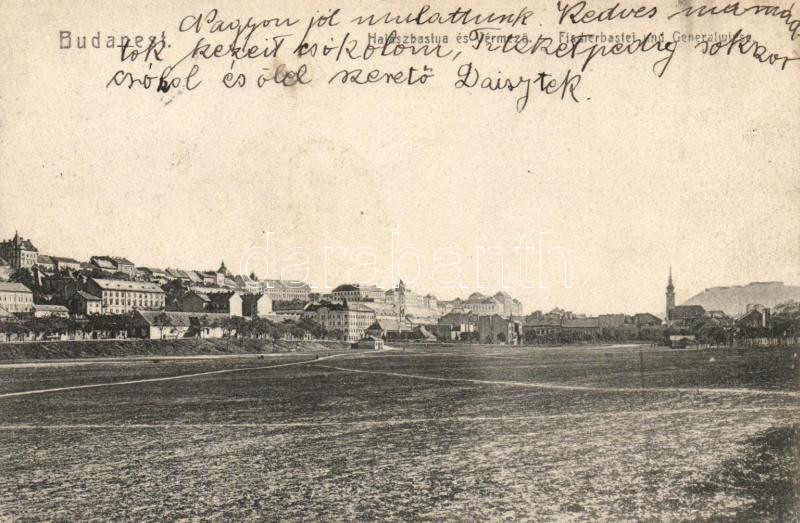 Nagyon jól mulattunk. Kedves mamád
Budapest. Halászbastya és Vérmező. Fischerbastei und Generalwiese.
tok kezeit csókolom, Titeket pedig sokszor
csókol és ölel szerető Daisytek.
darabanth